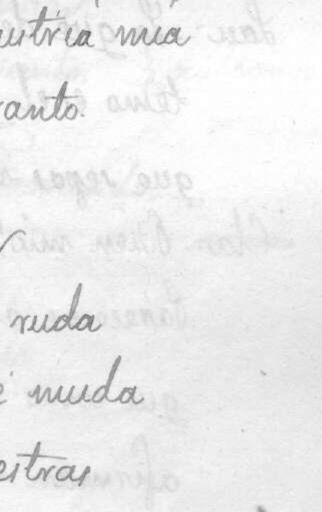 ustria mia
anto.
ruda
é muda
estras